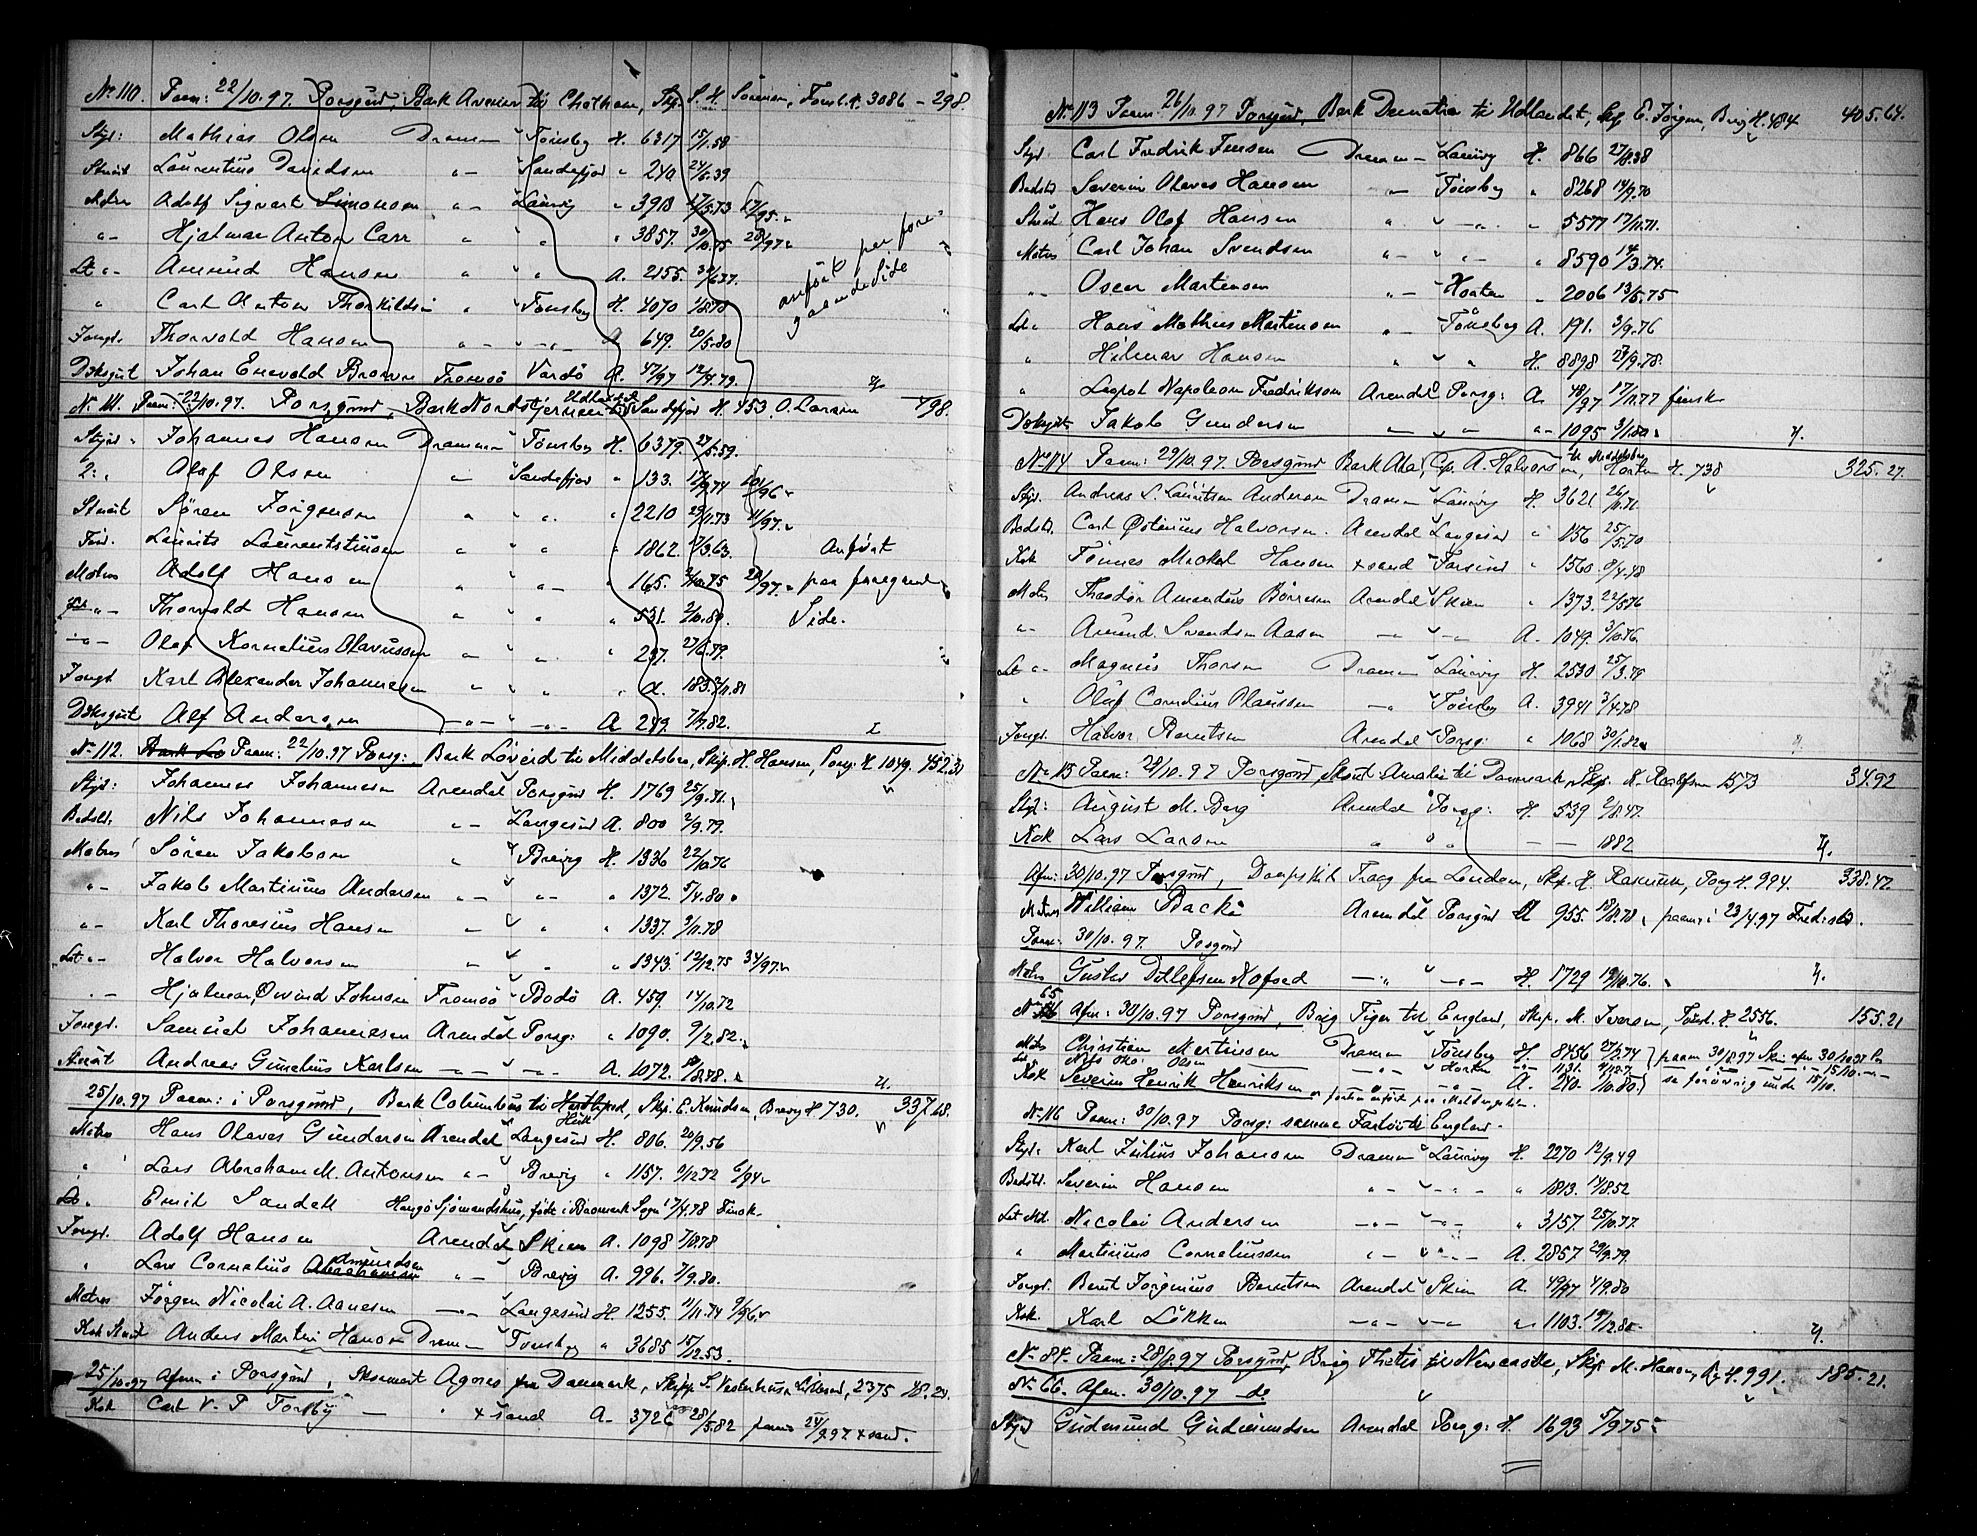 No 110. Paam: 22/10.97. Porsgrund, Bark Avenir til Chatham, Skp. S. H. Sörensen, Tönsb. H. 3086 - 298.
Styr: Mathias Olsen Dramen " Tönsberg H. 6317 15/1.58
Stuert Laurentius Davidsen " - " Sandefjord " 240 24/6.39
Adolf Sigvart Simonsen " - " Laurvig " 3913 17/5.73
" - Hjalmar Anton Carr " " " " 3857. 30/10.75
Let " - Amund Hansen " " " A. 2155. 30/6.77.
anført paa fore-
gaaende Side
" Carl Anton Thorkildsen " " Tönsberg H. 4070 1/6.78
Jungd. Thorvald Hansen " - " - " - A 649. 20/5.80
Dæksgut Johan Enevold Broser Tromsö Vardö A. 47/97 12/4.79.
No 111. Paam: 22/10.97. Porsgrund, Bark Nordstjernen til Sandefjord H. 453 O. Larsen 498.
Styrd: Johannes Hansen Dramen " Tönsberg H. 6379. 27/5.59.
2: " Olaf Olsen " - " Sandefjord " 133.
Stuert Sören Jörgensen " " " " 2210 29/11.73
Tim. Laurits Laurentsiusen " " " " 1862. 17/3.63. Anført
Matros Adolf Hansen " " " - " 165. 2/10.75 paa foregaaende
" - Thorvald Hansen " " " " 531. 2/10.80. Side.
- " - Olaf Kornelius Olavussen " " " " 237. 27/6.79.
Jungd Karl Alexander Johannesen " " " " A. 183. 2/11.81
Dæksgut Alf Andersen - " - " - " - A 249. 7/7.82.
No 112. Paam: 22/10.97 Porsg: Bark Löveid til Middelsbro, Skip. H. Hansen, Porsg: H. 1049. 452.31
Styr: Johannes Johannesen Arendal Porsgrund H. 1769 25/9.31.
Bedstd. Nils Johannesen " - " Langesund A. 800 2/9.79.
Matros Sören Jakobsen " " Brevig H. 1336 22/10.76
" - Jakob Martinius Andersen " - " " - " 1372. 5/4.80
" - Karl Thoresius Hansen " - " " " 1337. 3/11.78
Let " - Halvor Halvorsen " " " " 1343. 12/12.75
" - Hjalmar Øivind Johnsen Tromsö Bodö A. 459. 14/10.72
Jungd. Samuel Johannesen Arendal Porsg: " 1090. 9/2.82.
Stuert Andreas Gunelius Karlsen - " - " - A. 1072.
25/10.97 Paam: i Porsgrund, Bark Columbus til, Skp. E. Knudsen, Brevig H. 730. 337.68.
Matros Hans Olaves Gundersen Arendal Langesund H. 806. 20/9.56
" Lars Abraham M. Antonsen " - " Brevig " 1157. 9/12.72
Emil Sandell Hangö Sjömandshus, födt i Bromark Sogn 17/4.78 Finsk.
Jungd. Adolf Hansen Arendal Skien A. 1098 7/8.78
" Lars Cornelius Amundsen " - " Brevig A. 996. 7/9.80.
Matros Jörgen Nicolai A. Aanesen - " - Langesund H. 1255. 11/11.74
Kok Stuert Anders Martin Hansen Dramen Tönsberg " 3685 15/12.53.
25/10-97 Afm: i Porsgrund, Agnes fra Danmark, Skipp. S. Vesterhus, Lillesand, 2375 48.24.
Kok Carl V. P. Forsby — " Xsand A. 3726 28/5.82 paam 24/9.97 Xsand.
No 113 Paam: 26/10.97 Porsgrund, Bark Demetra til Holland, Skp E. Jörgensen, Brevig H. 484 405.64.
Styrd. Carl Fredrik Jensen Dramen - Laurvig H. 866 27/8.38
Bedstd Severin Olaves Hansen " - " Tönsberg " 8268 14/9.70
Stuert Hans Olaf Hansen " " - " - " 5577 17/11.71.
Matros Carl Johan Svendsen " - " " - " 8590 14/3.74.
" - Oscar Martensen " - " Horten " 2006 13/5.75
Let " Hans Mathias Martinsen " - " Tönsberg A. 191. 3/9.76
" Hilmar Hansen " " " H. 8898 27/9.78.
" Leopol Napoleon Fredriksen Arendal Porsg: A. 48/97 17/10.77 finsk
Dæksgut Jakob Gundersen " - " " " - 1095 3/1.80
No 114 Paam: 29/10.97. Porsgrund Bark Ala, Cpt. A. Halvorsen, til Middelsbro, Horten H. 738 325.27.
Styr. Andreas L. Lauritsen Andersen Dramen " Laurvig H. 3621 26/10.71
Bedstd. Carl Østenius Halvorsen. Arendal Langesund " 156 25/5.70
Kok Tönnes Meckel Hansen Xsand Farsund " 1560.
Matr. Theodor Amandus Börresen Arendal Skien " 1373. 22/5.76
" - Amund Svendsen Aasen - " - " - A. 1049. 3/10.76.
Let " - Magnus Thorsen Dramen " Laurvig H. 2530 25/3.79
" Oluf Cornelius Olaussen - " Tönsberg A. 3941 3/4.78
Jungd. Halvor Berntsen Arendal Porsg: " 1068 30/1.82
No 115 Paam: 28/10.97 Porsgrund, Skut Amalie til Danmark, Skp. N. Raalfsen 1573 34.92
Styr: August M. Berg Arendal Porsg: H. 539 2/8.47.
Kok Lars Larsen " " " — — 1882
Afm: 30/10.97 Porsgrund, Dampskib Traag fra London, Skp. H. Rasmussen, Porsg H. 994. 338.47
Matros William Backe Arendal Porsgrund A 955. 18/11.78, paam: i 23/4.97 Fredrikstad.
Paam: 30/10.97. Porsgrund
Matros Gustav Ditlefsen Kofoed - " - " - " - H. 1729 19/10.76.
No 65 Afm: 30/10.97 Porsgrund, Brig Tiger til England, Skp. M. Iversen, Tönsb. H. 2556. 155.21
Matros Christian Martinsen Dramen " Tönsberg H. 8456 27/2.74 paam 30/8.97 Ski afm 30/10.97 Po
Let " Nils Otto Olsen - " - " Horten - " - 1131.
Kok Severin Henrik Henriksen - " - " - A. 240. /10.80.
No 116 Paam: 30/10.97 Porsg: samme Fartöi til England.
Styr. Karl Julius Johansen Dramen " Laurvig H. 2270 12/9.49
Bedstd. Severin Hansen " - " - " " 1813. 14/8.52
Let Md. Nicolai Andersen - " - " - " 3157. 25/10.77.
" Martinius Corneliussen " - " " - A. 2857 29/9.79.
Jungd. Bernt Jörginius Berntsen Arendal Skien A. 49/97 4/9.80
Kok. Karl Lökken - " - " - " 1103. 19/12.80.
No 84. Paam: 28/8.97 Porsgrund, Brig Thetis til Newcastle, Skp. M. Hansen, H. 991. 185.21.
No 66. Afm. 30/10.97 do
Styrd Gudmund Gudmundsen Arendal Porsg: H. 1693 5/9.75